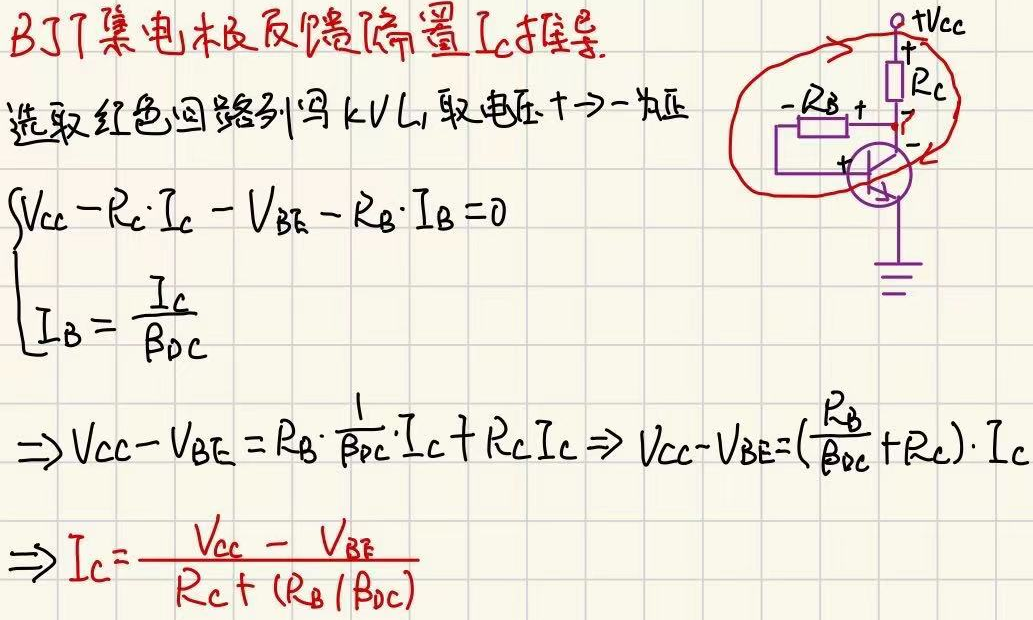 BJT集电极反馈偏置Ic推导.
+Vcc
+
Rc
- RB +
-
-
+
选取红色回路列写KVL, 取电压+→-为正
Vcc - Rc·Ic - VBE - RB·IB = 0
IB = Ic / βDC
⇒ Vcc - VBE = RB · 1/βDC · Ic + RcIc ⇒ Vcc - VBE = (RB/βDC + Rc) · Ic
⇒ Ic = Vcc - VBE / Rc + (RB/βDC)